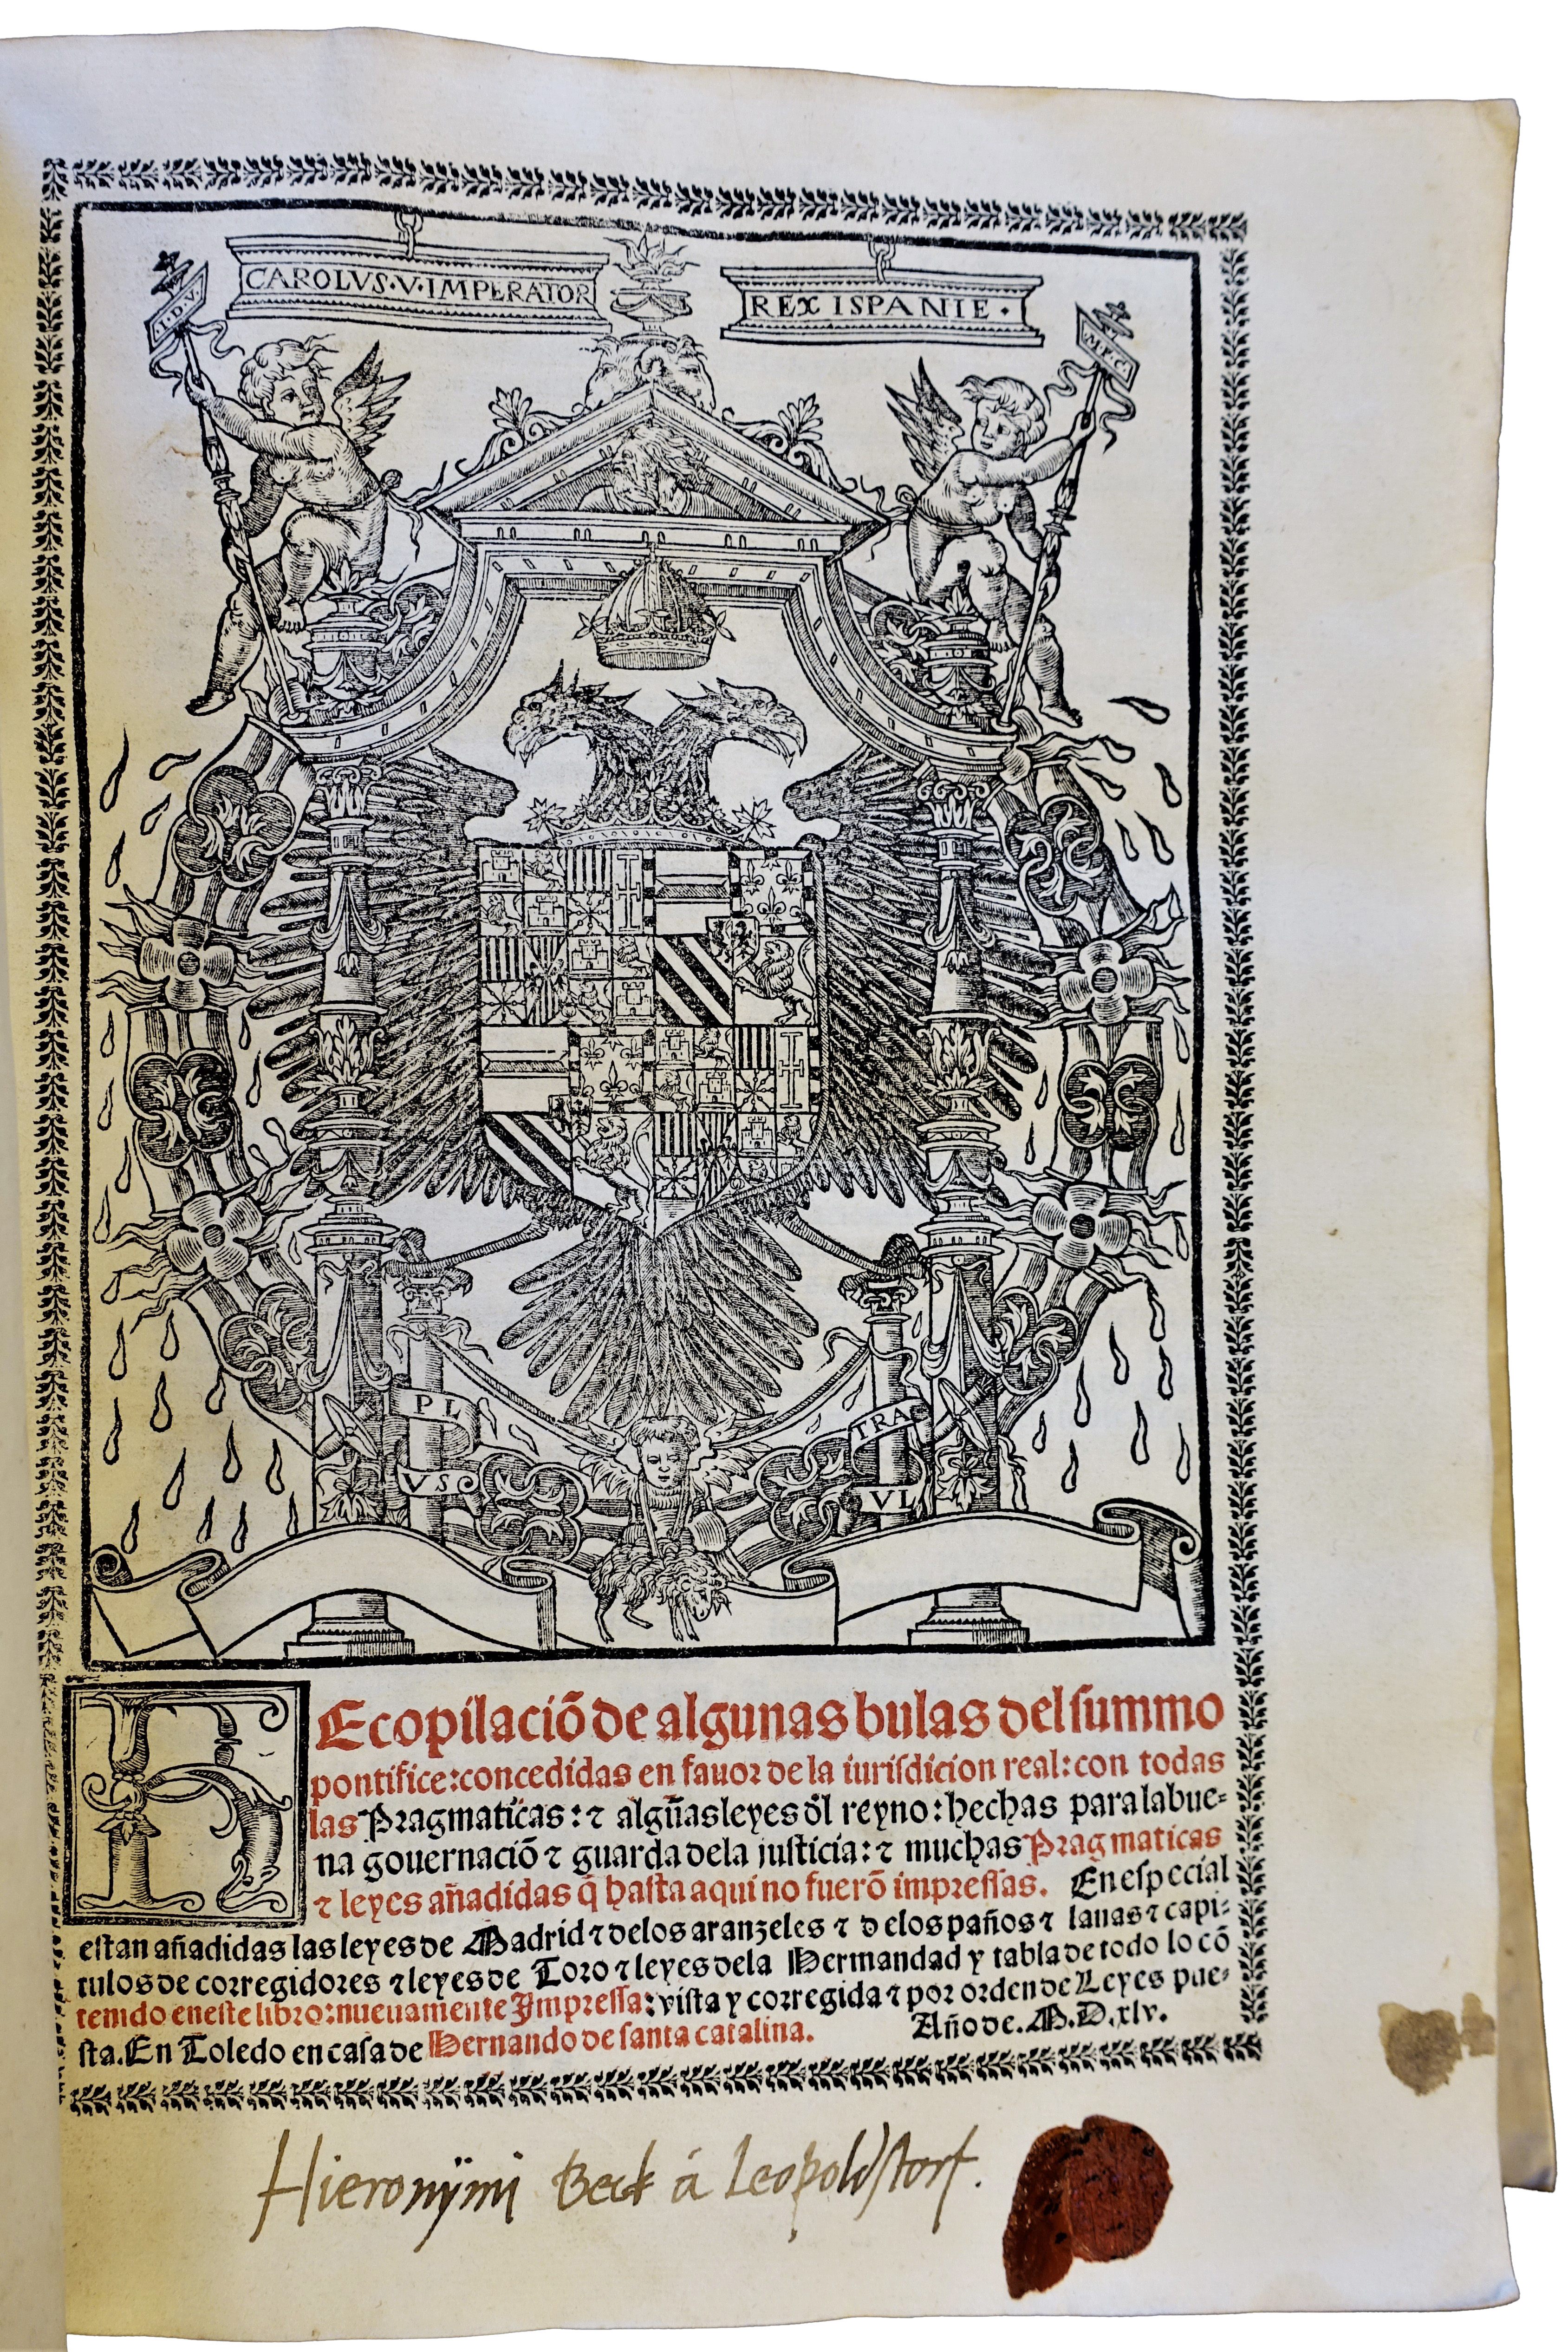 CAROLVS·V·IMPERATOR
REX ISPANIE·
I·D·V·
M·F·C·
PL
VS
TRA
VL
REcopilaciō de algunas bulas del ſummo
pontifice: concedidas en fauor de la iuriſdicion real: con todas
las Pragmaticas: ⁊ algũas leyes ðl reyno: hechas para la bue-
na gouernaciō ⁊ guarda dela juſticia: ⁊ muchas Pragmaticas
⁊ leyes añadidas q̃ haſta aqui no fuerō impreſſas. En eſpecial
eſtan añadidas las leyes de Madrid ⁊ delos aranzeles ⁊ delos paños ⁊ lanas ⁊ capi-
tulos de corregidores ⁊ leyes de Toro ⁊ leyes dela Hermandad y tabla de todo lo cō
tenido en eſte libro: nueuamente Impreſſa: viſta y corregida ⁊ por orden de Leyes pue-
ſta. En Toledo en caſa de Hernando de ſanta catalina. Año de. M.D.xlv.
Hieronÿmi Beck á Leopoldſtorf.